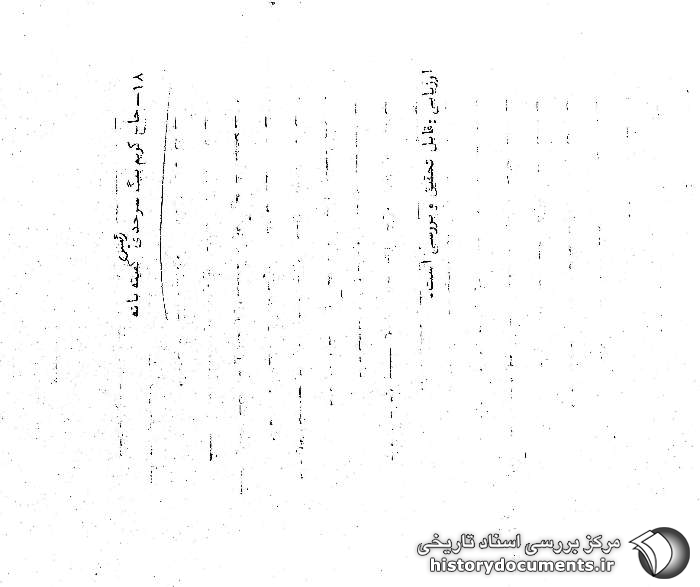 ۱۸- حاج کریم بیگ سرحدی رئیس کمیته بانه
ارزیابی: قابل تحقیق و بررسی است.
مرکز بررسی اسناد تاریخی
historydocuments.ir